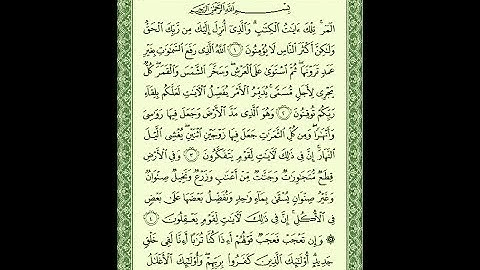 بِسْمِ ٱللَّهِ ٱلرَّحْمَٰنِ ٱلرَّحِيمِ
الٓمٓر ۚ تِلْكَ ءَايَٰتُ ٱلْكِتَٰبِ ۗ وَٱلَّذِىٓ أُنزِلَ إِلَيْكَ مِن رَّبِّكَ ٱلْحَقُّ
وَلَٰكِنَّ أَكْثَرَ ٱلنَّاسِ لَا يُؤْمِنُونَ ١ ٱللَّهُ ٱلَّذِى رَفَعَ ٱلسَّمَٰوَٰتِ بِغَيْرِ
عَمَدٍ تَرَوْنَهَا ۖ ثُمَّ ٱسْتَوَىٰ عَلَى ٱلْعَرْشِ ۖ وَسَخَّرَ ٱلشَّمْسَ وَٱلْقَمَرَ ۖ كُلٌّ
يَجْرِى لِأَجَلٍ مُّسَمًّى ۚ يُدَبِّرُ ٱلْأَمْرَ يُفَصِّلُ ٱلْءَايَٰتِ لَعَلَّكُم بِلِقَآءِ
رَبِّكُمْ تُوقِنُونَ ٢ وَهُوَ ٱلَّذِى مَدَّ ٱلْأَرْضَ وَجَعَلَ فِيهَا رَوَٰسِىَ
وَأَنْهَٰرًا ۖ وَمِن كُلِّ ٱلثَّمَرَٰتِ جَعَلَ فِيهَا زَوْجَيْنِ ٱثْنَيْنِ ۖ يُغْشِى ٱلَّيْلَ
ٱلنَّهَارَ ۚ إِنَّ فِى ذَٰلِكَ لَءَايَٰتٍ لِّقَوْمٍ يَتَفَكَّرُونَ ٣ وَفِى ٱلْأَرْضِ
قِطَعٌ مُّتَجَٰوِرَٰتٌ وَجَنَّٰتٌ مِّنْ أَعْنَٰبٍ وَزَرْعٌ وَنَخِيلٌ صِنْوَانٌ
وَغَيْرُ صِنْوَانٍ يُسْقَىٰ بِمَآءٍ وَٰحِدٍ وَنُفَضِّلُ بَعْضَهَا عَلَىٰ بَعْضٍ
فِى ٱلْأُكُلِ ۚ إِنَّ فِى ذَٰلِكَ لَءَايَٰتٍ لِّقَوْمٍ يَعْقِلُونَ ٤
۞ وَإِن تَعْجَبْ فَعَجَبٌ قَوْلُهُمْ أَءِذَا كُنَّا تُرَٰبًا أَءِنَّا لَفِى خَلْقٍ
جَدِيدٍ ۗ أُو۟لَٰٓئِكَ ٱلَّذِينَ كَفَرُوا۟ بِرَبِّهِمْ ۖ وَأُو۟لَٰٓئِكَ ٱلْأَغْلَٰلُ